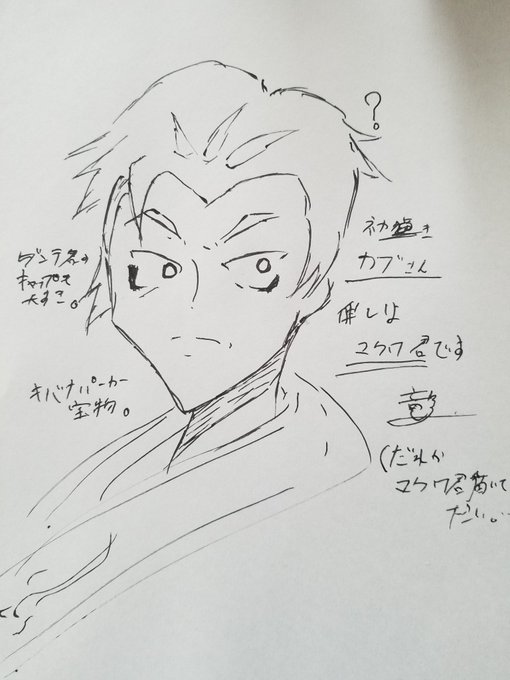 ?
初描き
カブさん
推しは
マクワ君です
(だれか
マクワ君描いて
ダンデ君の
キャップも
大すこ。
キバナパーカー
宝物。